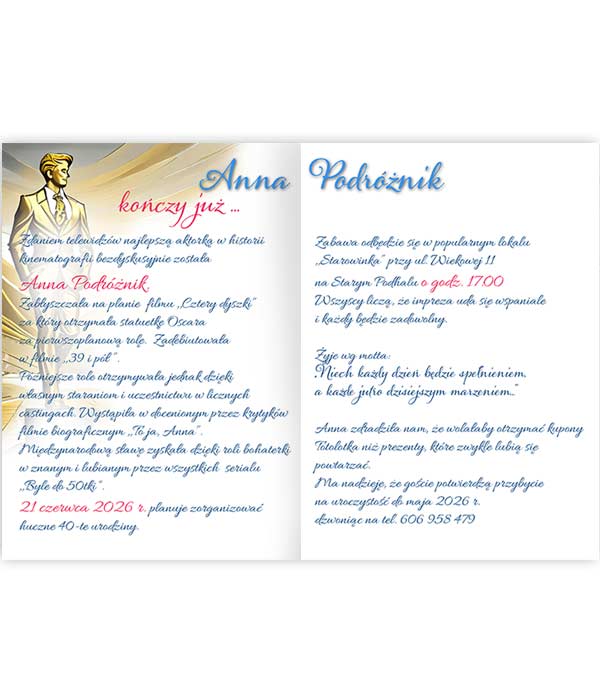 Anna
kończy już ...
Zdaniem telewidzów najlepszą aktorką w historii
kinematografii bezdyskusyjnie została
Anna Podróżnik.
Zabłyszczała na planie filmu „Cztery dyszki”
za który otrzymała statuetkę Oscara
za pierwszoplanową rolę. Zadebiutowała
w filmie „39 i pół”.
Późniejsze role otrzymywała jednak dzięki
własnym staraniom i uczestnictwu w licznych
castingach. Wystąpiła w docenionym przez krytyków
filmie biograficznym „To ja, Anna”.
Międzynarodową sławę zyskała dzięki roli bohaterki
w znanym i lubianym przez wszystkich serialu
„Byle do 50tki”.
21 czerwca 2026 r. planuje zorganizować
huczne 40-te urodziny.
Podróżnik
Zabawa odbędzie się w popularnym lokalu
„Starowinka” przy ul. Wiekowej 11
na Starym Podhalu o godz. 17.00
Wszyscy liczą, że impreza uda się wspaniale
i każdy będzie zadowolny.
Żyje wg motta:
„Niech każdy dzień będzie spełnieniem,
a każde jutro dzisiejszym marzeniem...”
Anna zdradziła nam, że wolałaby otrzymać kupony
Totolotka niż prezenty, które zwykle lubią się
powtarzać.
Ma nadzieję, że goście potwierdzą przybycie
na uroczystość do maja 2026 r.
dzwoniąc na tel. 606 958 479